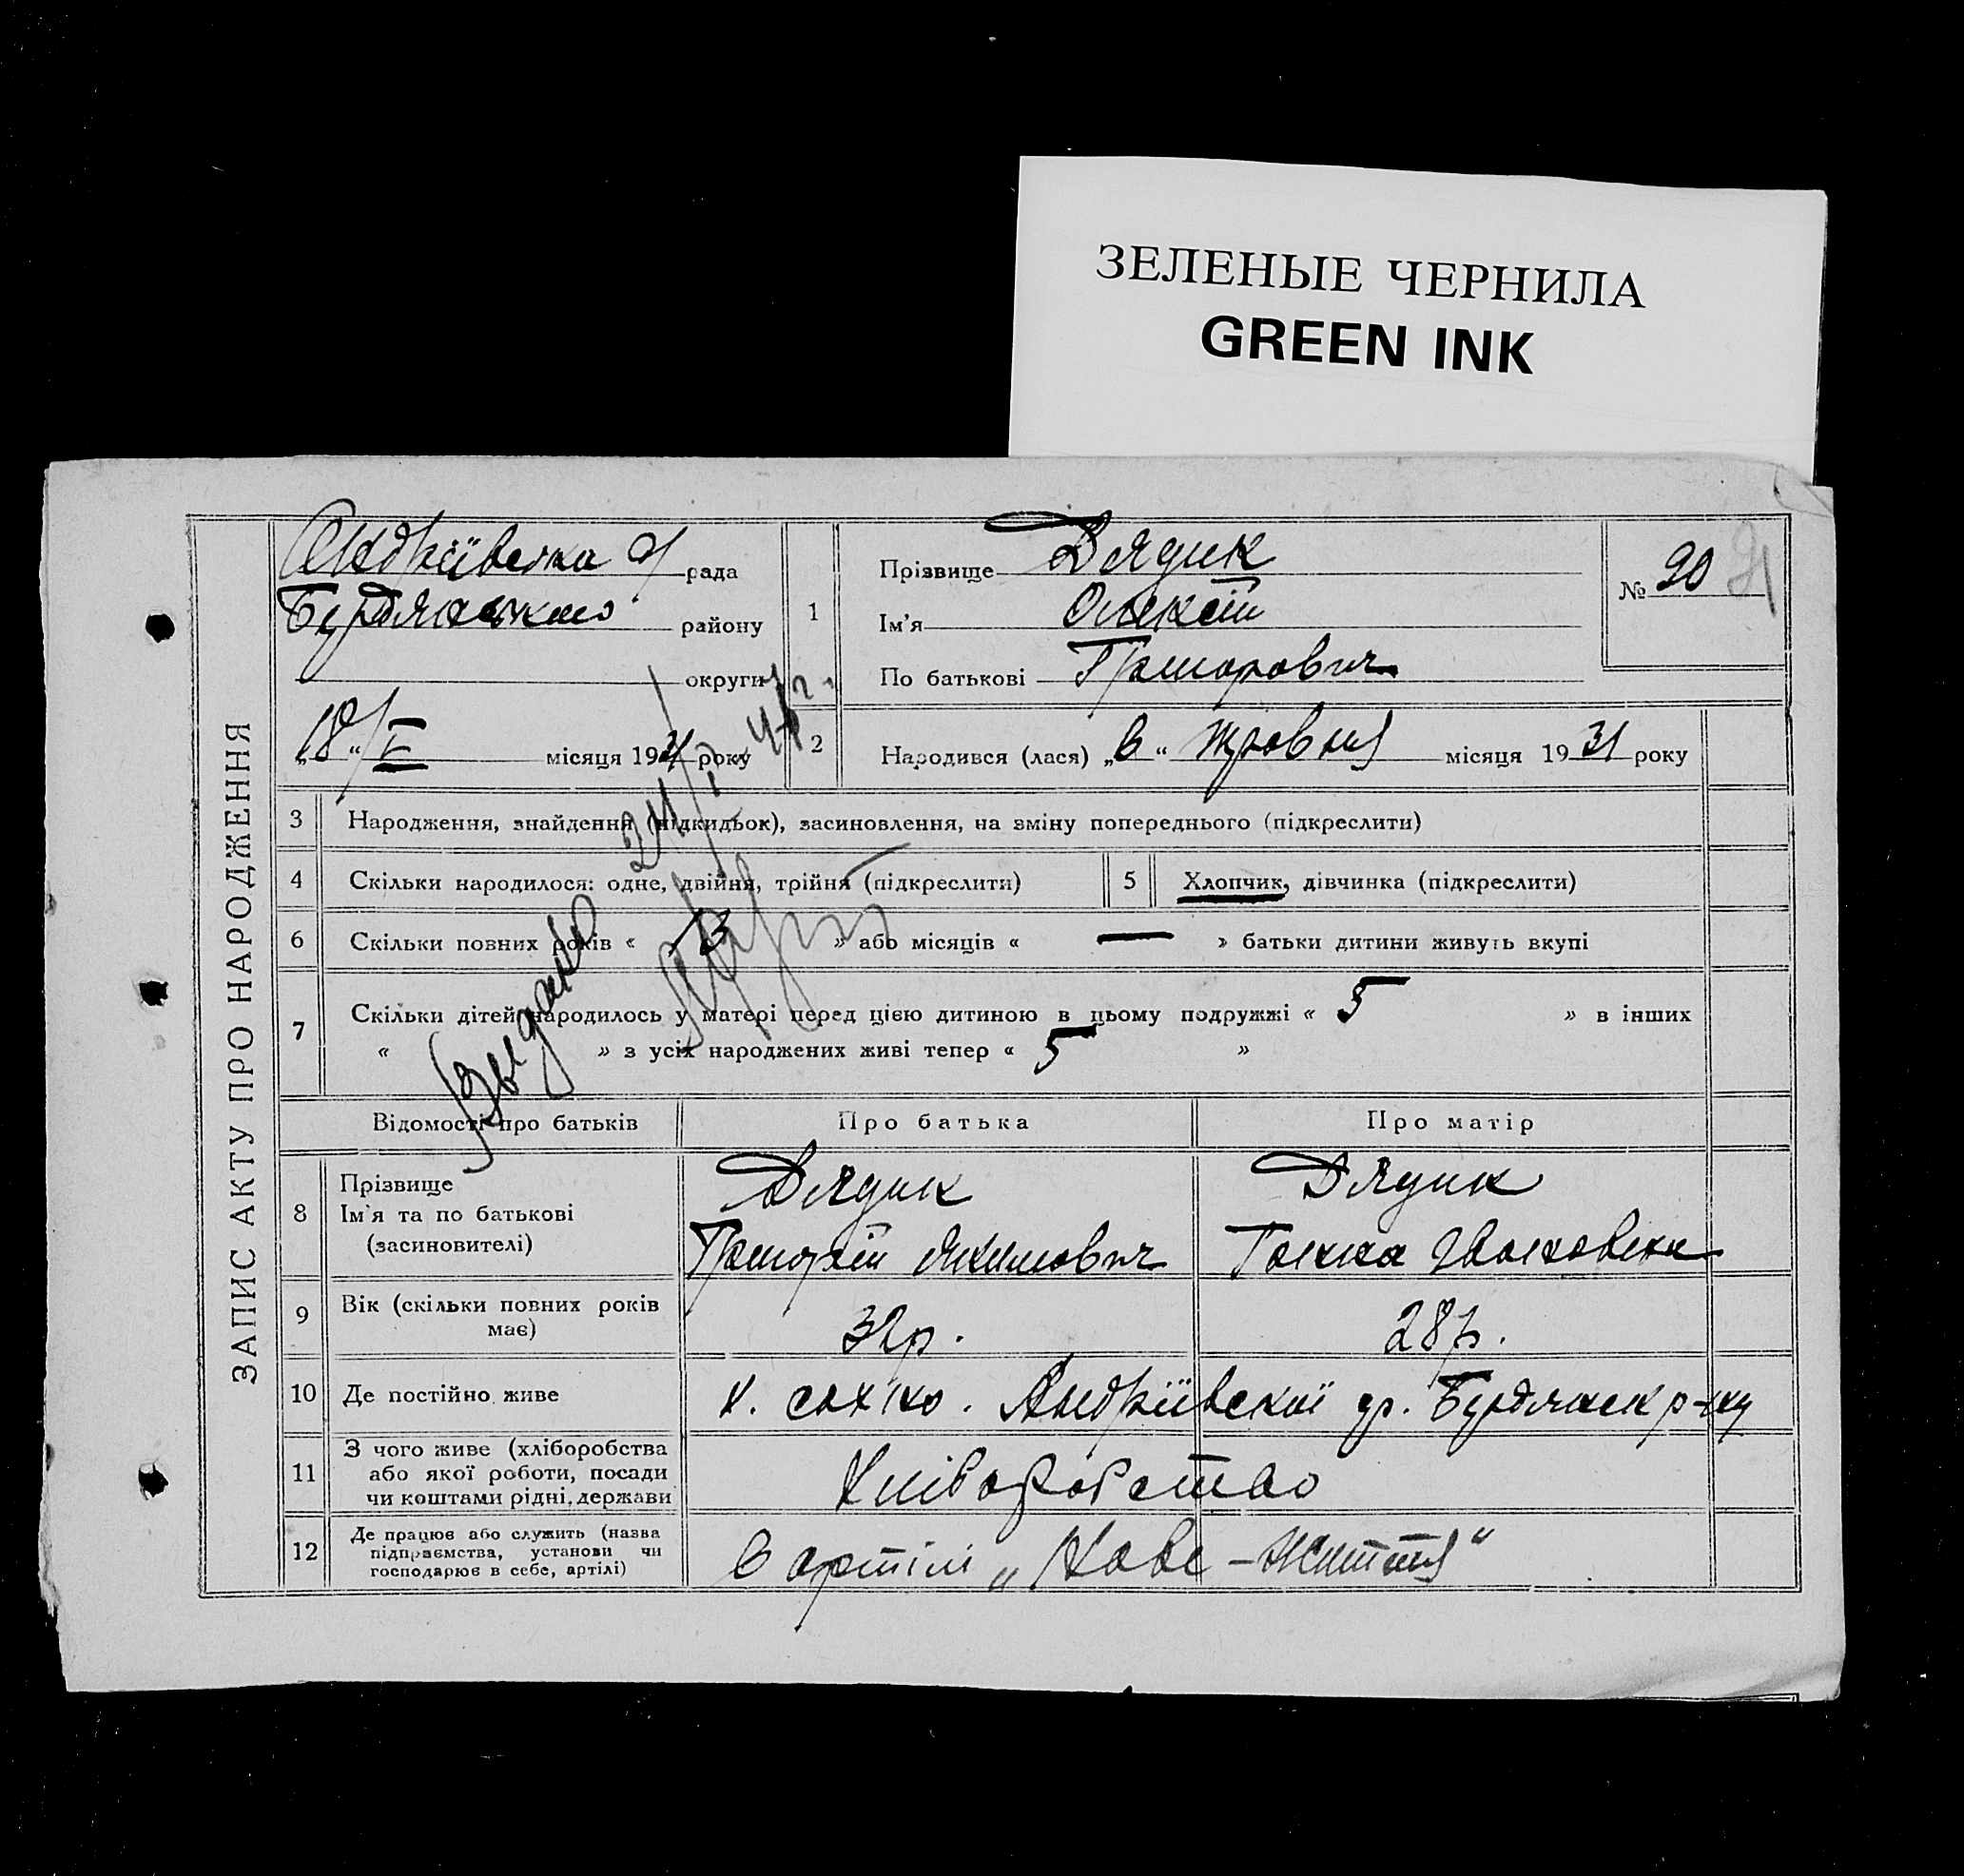 ЗЕЛЕНЫЕ ЧЕРНИЛА
GREEN INK
ЗАПИС АКТУ ПРО НАРОДЖЕННЯ
рада
району
округи
„18“ V місяця 1931 року
1
Прізвище Дядик
Ім'я Олексій
По батькові Григорович
№ 90
91
2
Народився (лася) „8“ Травня місяця 1931 року
3 Народження, знайдення (підкидьок), засиновлення, на зміну попереднього (підкреслити)
4 Скільки народилося: одне, двійня, трійня (підкреслити)
5 Хлопчик, дівчинка (підкреслити)
6 Скільки повних років « 13 » або місяців « — » батьки дитини живуть вкупі
7 Скільки дітей народилось у матері перед цією дитиною в цьому подружжі « 5 » в інших
« » з усіх народжених живі тепер « 5 »
Выдано
Відомості про батьків
Про батька
Про матір
8 Прізвище
Ім'я та по батькові
(засиновителі)
Дядик
Григорій Якимович
Дядик
Ганна
9 Вік (скільки повних років
має)
32 р.
28 р.
10 Де постійно живе
х. Андріївської ур. р-ну
11 З чого живе (хліборобства
або якої роботи, посади
чи коштами рідні, держави
Хліборобство
12 Де працює або служить (назва
підприємства, установи чи
господарює в себе, артілі)
в артілі „Нове-Життя“